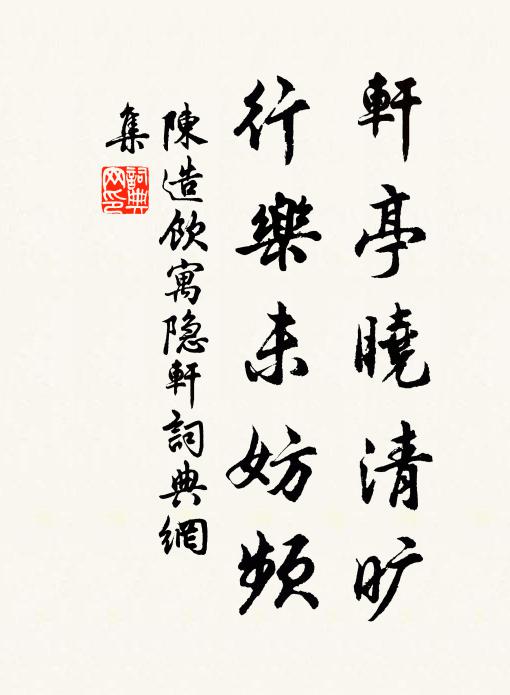 軒亭曉清旷
行樂未妨頻
陳造飲寓隐軒詞典網
集
詞典网印